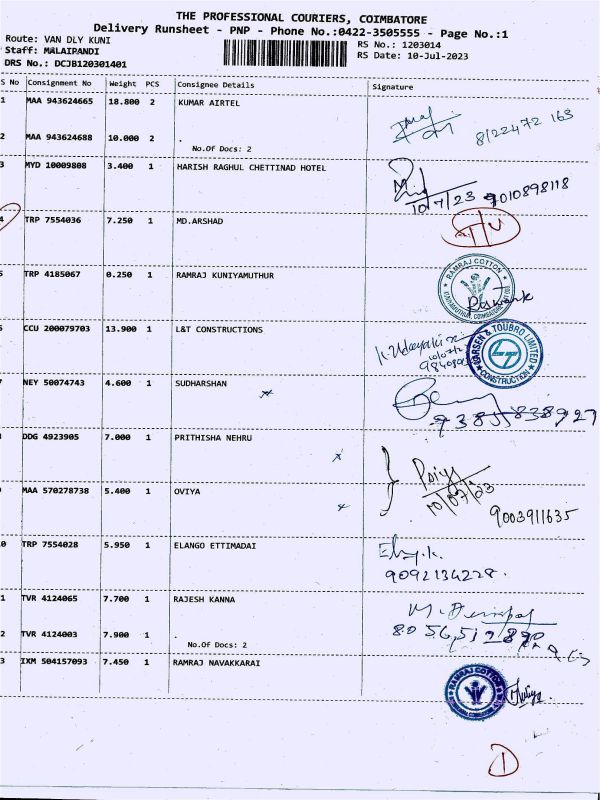 THE PROFESSIONAL COURIERS, COIMBATORE
Delivery Runsheet - PNP - Phone No.:0422-3505555 - Page No.:1
Route: VAN DLY KUNI
Staff: MALAIPANDI
DRS No.: DCJB120301401
RS No.: 1203014
RS Date: 10-Jul-2023
S No Consignment No Weight PCS Consignee Details Signature
1 MAA 943624665 18.800 2 KUMAR AIRTEL
2 MAA 943624688 10.000 2 .
No.Of Docs: 2
8122472 163
3 MYD 10009808 3.400 1 HARISH RAGHUL CHETTINAD HOTEL
10/7/23 9010898118
4 TRP 7554036 7.250 1 MD.ARSHAD
5 TRP 4185067 0.250 1 RAMRAJ KUNIYAMUTHUR
RAMRAJ COTTON
6 CCU 200079703 13.900 1 L&T CONSTRUCTIONS
LARSEN & TOUBRO LIMITED
CONSTRUCTION
7 NEY 50074743 4.600 1 SUDHARSHAN
9385838927
DDG 4923905 7.000 1 PRITHISHA NEHRU
Priya
10/07/23
MAA 570278738 5.400 1 OVIYA
9003911635
0 TRP 7554028 5.950 1 ELANGO ETTIMADAI
9092134228.
1 TVR 4124065 7.700 1 RAJESH KANNA
2 TVR 4124003 7.900 1 .
No.Of Docs: 2
3 IXM 504157093 7.450 1 RAMRAJ NAVAKKARAI
RAMRAJ COTTON